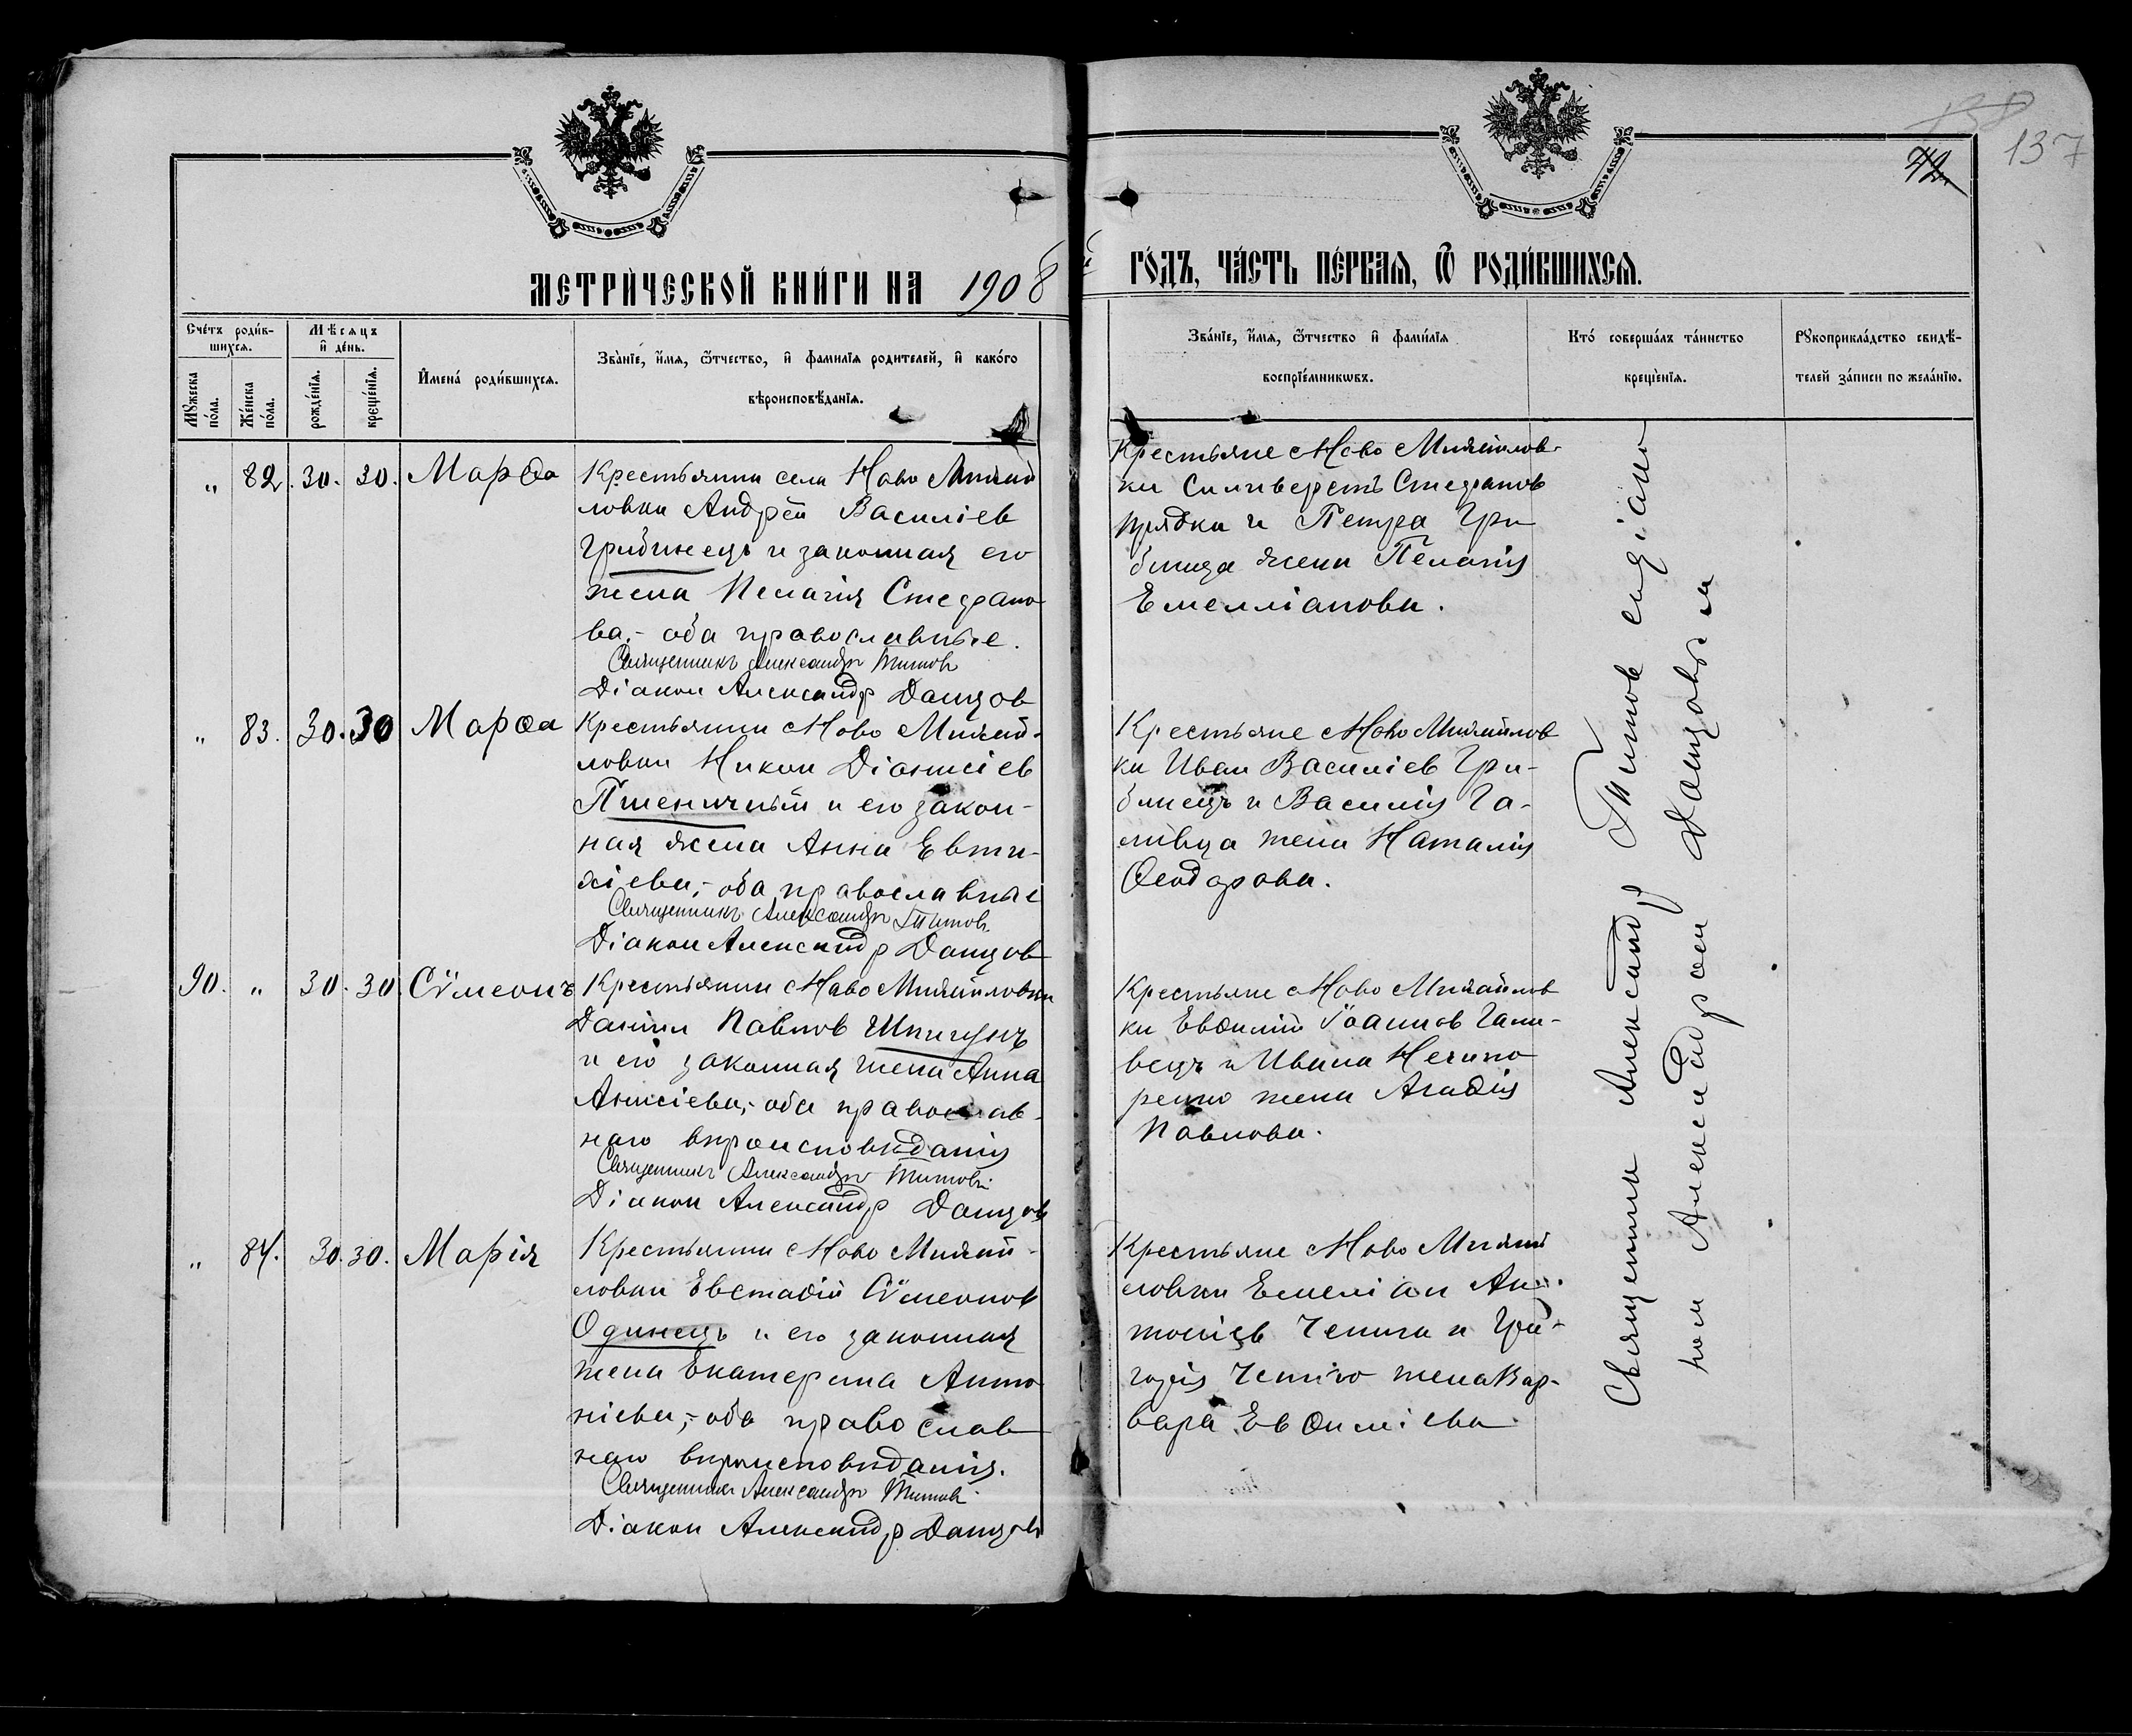 МЕТРИ́ЧЕСКОЙ КНИ́ГИ НА 1908
й ГО́ДЪ, ЧА́СТЬ ПЕ́РВАѦ, Ѿ РОДИ́ВШИХСѦ.
137
72
Сче́тъ роди́в-
шихсѧ.
Мѣ́сѧцъ
и҆ де́нь.
Мꙋ́жеска
по́ла.
Же́нска
по́ла.
рожде́нїѧ.
креще́нїѧ.
И҆мена̀ роди́вшихсѧ.
Зва́нїе, и҆́мѧ, ѻ҆́тчество, и҆ фами́лїѧ родителей, и҆ како́гѡ
вѣроисповѣ́данїѧ.
Зва́нїе, и҆́мѧ, ѻ҆́тчество и҆ фами́лїѧ
воспрїе́мникѡвъ.
Кто̀ соверша́лъ та́инство
креще́нїѧ.
Рꙋкоприкла́дство свидѣ́-
телей за́писи по жела́нїю.
„ 82. 30. 30. Марѳа
Крестьянин села Ново Михай
ловки Андрей Василіев
Грибинецъ и законная его
жена Пелагія Стефано
ва,- оба православные.
Священникъ Александръ Титовъ
Діакон Александр Данцов
Крестьяне Ново Михайлов-
ки Силиверстъ Стефанов
Прядка и Петра Гри
бинца жена Пелагія
Емелліанова.
„ 83. 30. 30 Марѳа
Крестьянин Ново Михай-
ловки Никон Діонисіев
Пшеничный и его закон-
ная жена Анна Евти-
хіева,- оба православные
Священникъ Александръ Титовъ
Діакон Александр Данцов
Крестьяне Ново Михайлов
ки Иван Василіев Гри-
бинецъ и Василія Га-
ливца жена Наталія
Ѳеодорова.
90. „ 30. 30. Сѵмеонъ
Крестьянин Ново Михайловки
Даніил Павлов Шпигунъ
и его законная жена Анна
Анисіева,- оба православ-
наго вѣроисповѣданія
Священникъ Александръ Титовъ
Діакон Александр Данцовъ
Крестьяне Ново Михайлов
ки Евѳимій Іоаннов Гали-
вецъ и Ивана Нечипо
ренко жена Агаѳія
Павлова.
„ 84. 30. 30. Марія
Крестьянин Ново Михай-
ловки Евстафій Сѵмеонов
Одинецъ и его законная
жена Екатерина Анто
ніева,- оба православ
наго вѣроисповѣданія.
Священникъ Александръ Титовъ
Діакон Александр Данцовъ
Крестьяне Ново Михай
ловки Емеліан Ан-
тоніев Чепига и Гри-
горія жена Вар-
вара Евѳиміева
Священник Александр Титов с діако
ном Александром Данцовым